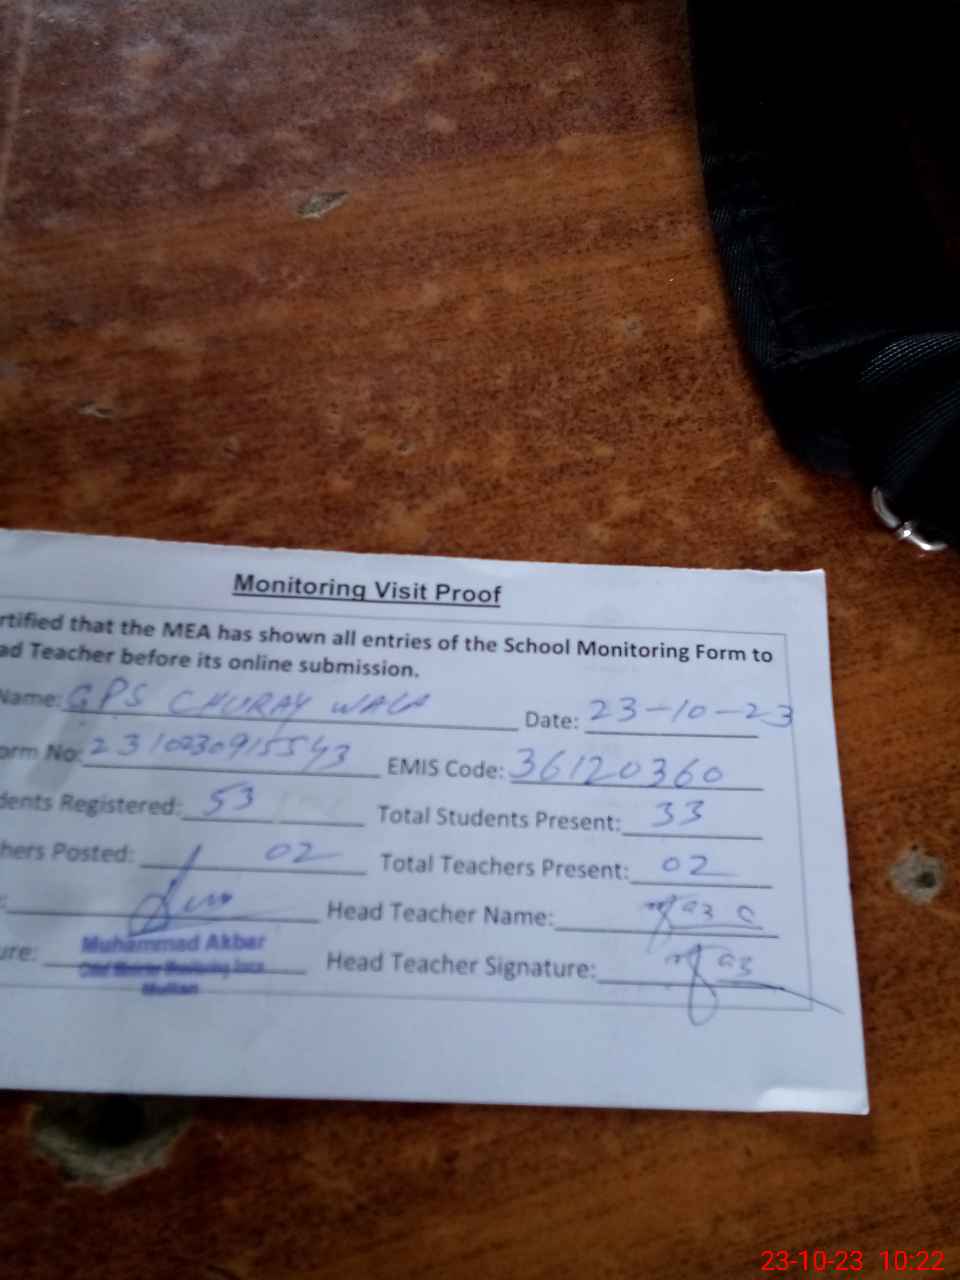 Monitoring Visit Proof
rtified that the MEA has shown all entries of the School Monitoring Form to
ad Teacher before its online submission.
Name: GPS CHURAY WALA Date: 23-10-23
orm No: 2310230915543 EMIS Code: 36120360
dents Registered: 53 Total Students Present: 33
hers Posted: 02 Total Teachers Present: 02
: Head Teacher Name:
ure: Muhammad Akbar Head Teacher Signature:
Multan
23-10-23 10:22